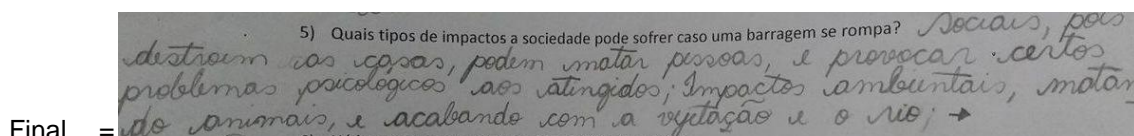 5) Quais tipos de impactos a sociedade pode sofrer caso uma barragem se rompa? Sociais, pois
destroem as casas, podem matar pessoas, e provocar certos
problemas psicológicos aos atingidos; Impactos ambientais, matan
Final = do animais, e acabando com a vegetação e o rio; →